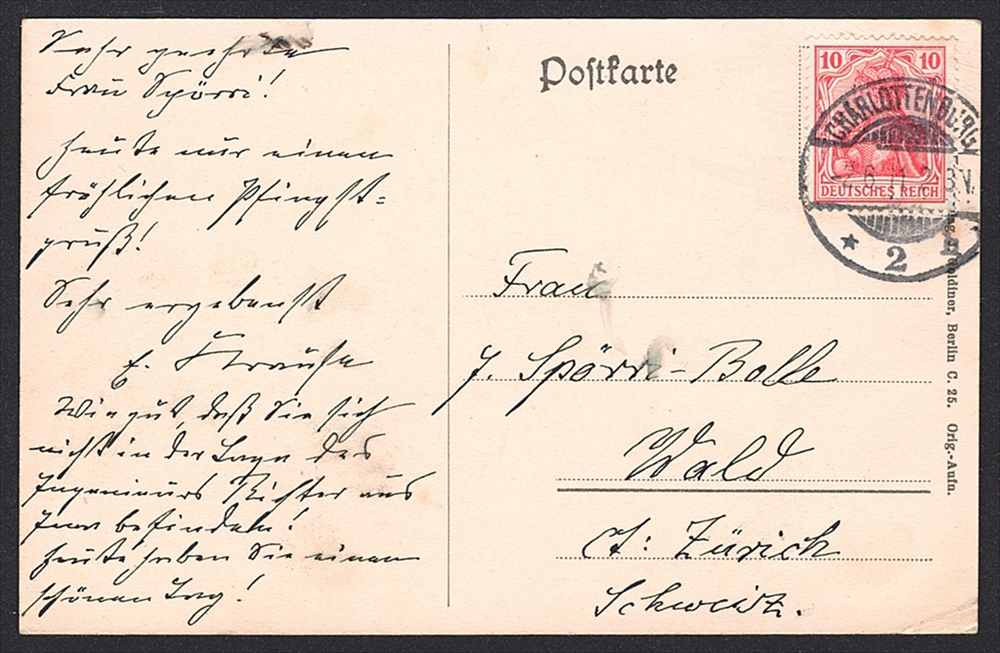 Sehr geehrte
Frau Spörri!
Heute nur einen
fröhlichen Pfingst=
gruß!
Sehr ergebenst
E. Krause
Wie gut, daß Sie sich
nicht in der Lage des
Ingenieurs Richter aus
Jena befinden!
Heute haben Sie einen
schönen Tag!
Postkarte
10 10
DEUTSCHES REICH
CHARLOTTENBURG
6.11.
V.
* 2
Frau
J. Spörri-Bolle
Wald
Ct: Zürich
Schweiz.
Berlin C. 25. Orig.-Aufn.